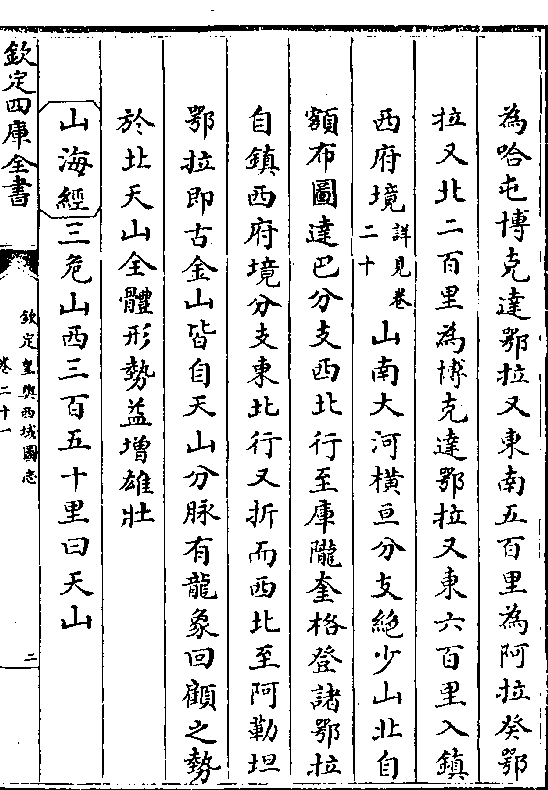 為哈屯博克達鄂拉又東南五百里為阿拉癸鄂
拉又北二百里為博克達鄂拉又東六百里入鎮
西府境詳見卷二十山南大河橫亘分支絶少山北自
額布圖達巴分支西北行至庫隴奎格登諸鄂拉
自鎮西府境分支東北行又折而西北至阿勒坦
鄂拉即古金山皆自天山分脉有龍象回顧之勢
於北天山全體形勢益增雄壯
山海經三危山西三百五十里曰天山
欽定四庫全書
欽定皇輿西域圖志
卷二十一
二